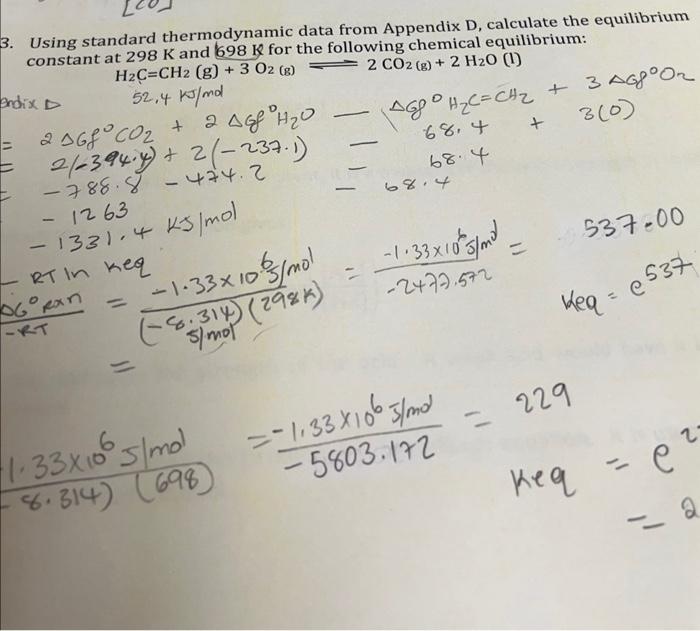 [CO]
3. Using standard thermodynamic data from Appendix D, calculate the equilibrium
constant at 298 K and 698 K for the following chemical equilibrium:
H2C=CH2 (g) + 3 O2 (g) ⇌ 2 CO2 (g) + 2 H2O (l)
endix D 52.4 KJ/mol
= 2 ΔGf° CO2 + 2 ΔGf° H2O — ΔGf° H2C=CH2 + 3 ΔGf° O2
= 2(-394.4) + 2(-237.1) — 68.4 + 3(0)
= -788.8 - 474.2 — 68.4
- 1263 — 68.4
- 1331.4 KJ/mol
- RT ln Keq
ΔG° rxn / -RT = -1.33x10^6 J/mol / (-8.314 J/mol) (298K) = -1.33x10^6 J/mol / -2477.572 = 537.00
Keq = e^537
=
-1.33x10^6 J/mol / -8.314) (698) = -1.33x10^6 J/mol / -5803.172 = 229
Keq = e^2
= 2